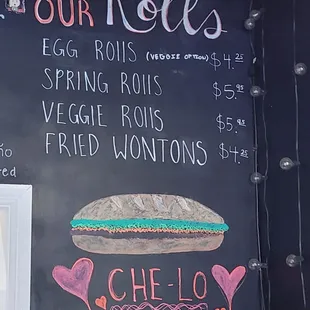 OUR Rolls
EGG ROllS (VEGGIE OPTION) $4.25
SPRING ROllS $5.95
VEGGIE ROllS $5.95
FRIED WONTONS $4.25
CHE-LO